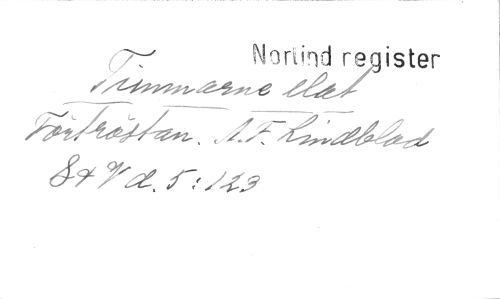 Norlind register
Timmarne slå
Förtröstan. A. F. Lindblad
S+V d. 5:123